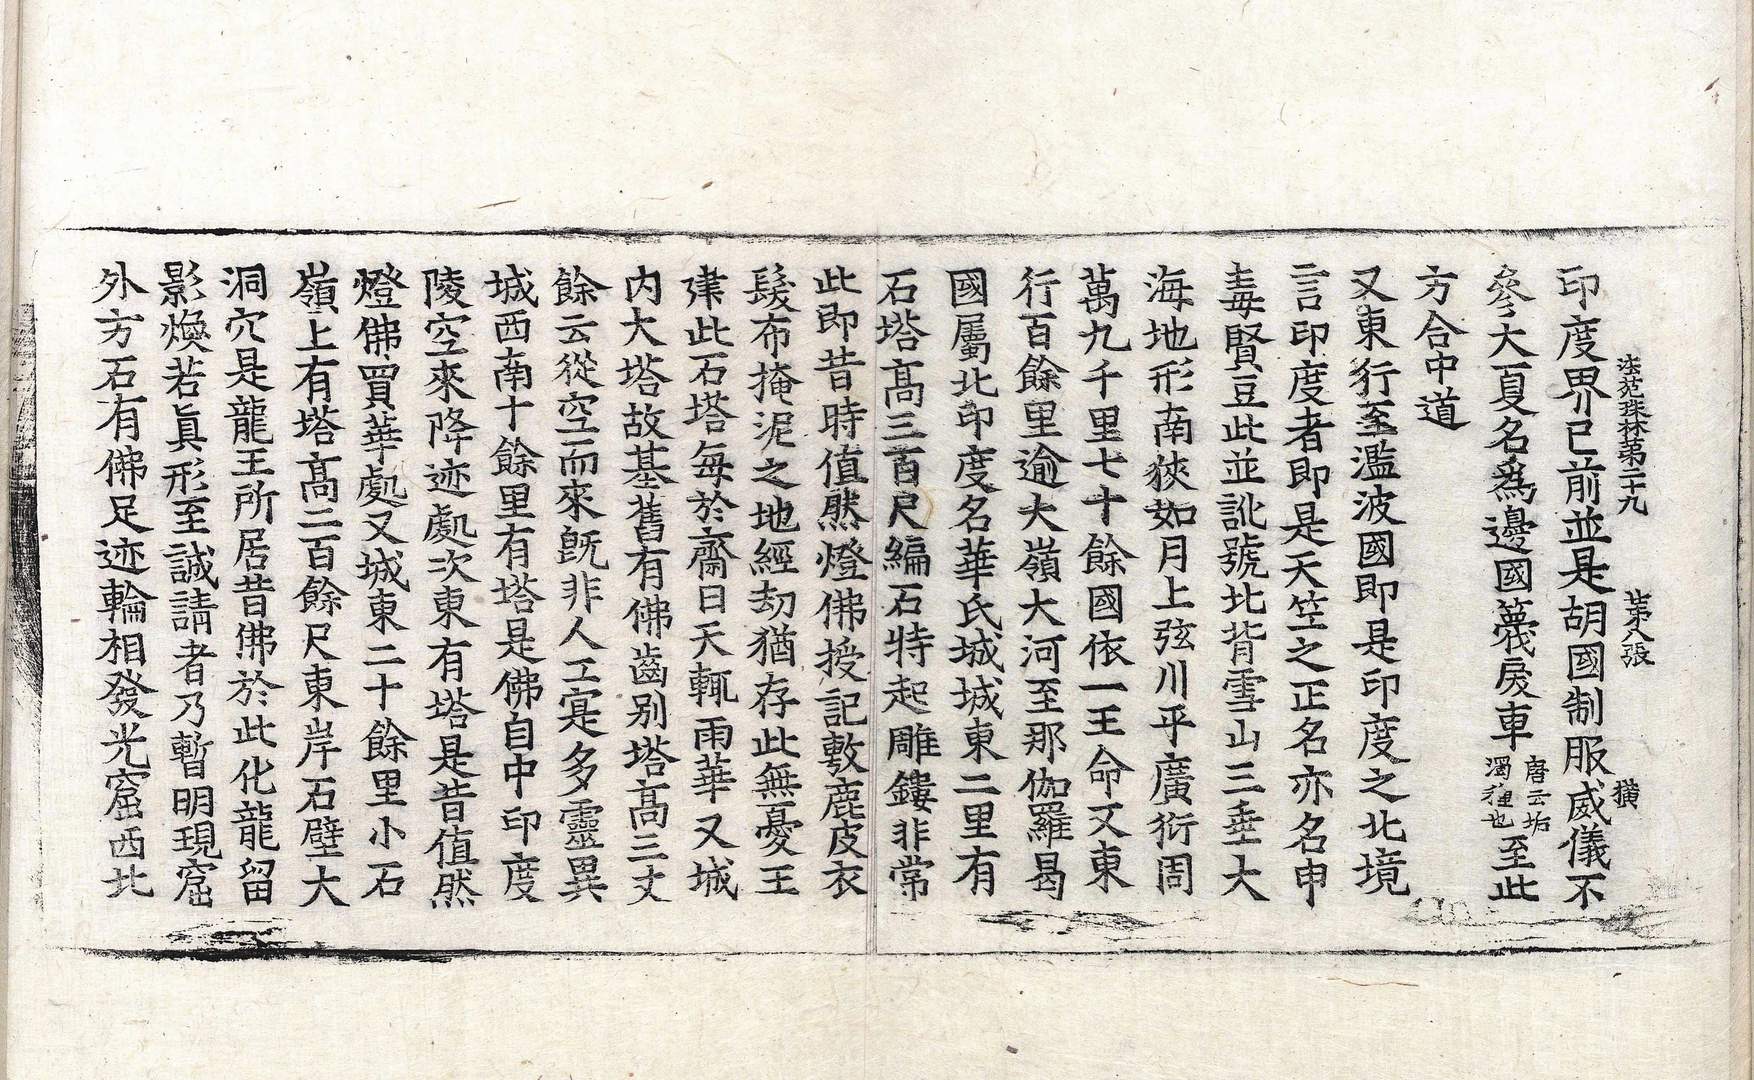 法苑珠林第二十九 第八張 橫
印度界已前並是胡國制服威儀不
參大夏名爲邊國蔑戾車唐云垢濁種也至此
方合中道
又東行至濫波國即是印度之北境
言印度者即是天竺之正名亦名申
毒賢豆此並訛號北背雪山三垂大
海地形南狹如月上弦川平廣衍周
萬九千里七十餘國依一王命又東
行百餘里逾大嶺大河至那伽羅曷
國屬北印度名華氏城城東二里有
石塔高三百尺編石特起雕鏤非常
此即昔時值然燈佛授記敷鹿皮衣
髮布掩泥之地經劫猶存此無憂王
建此石塔每於齋日天輒雨華又城
内大塔故基舊有佛齒别塔高三丈
餘云從空而來旣非人工寔多靈異
城西南十餘里有塔是佛自中印度
陵空來降迹處次東有塔是昔值然
燈佛買華處又城東二十餘里小石
嶺上有塔高二百餘尺東岸石壁大
洞穴是龍王所居昔佛於此化龍留
影煥若眞形至誠請者乃暫明現窟
外方石有佛足迹輪相發光窟西北